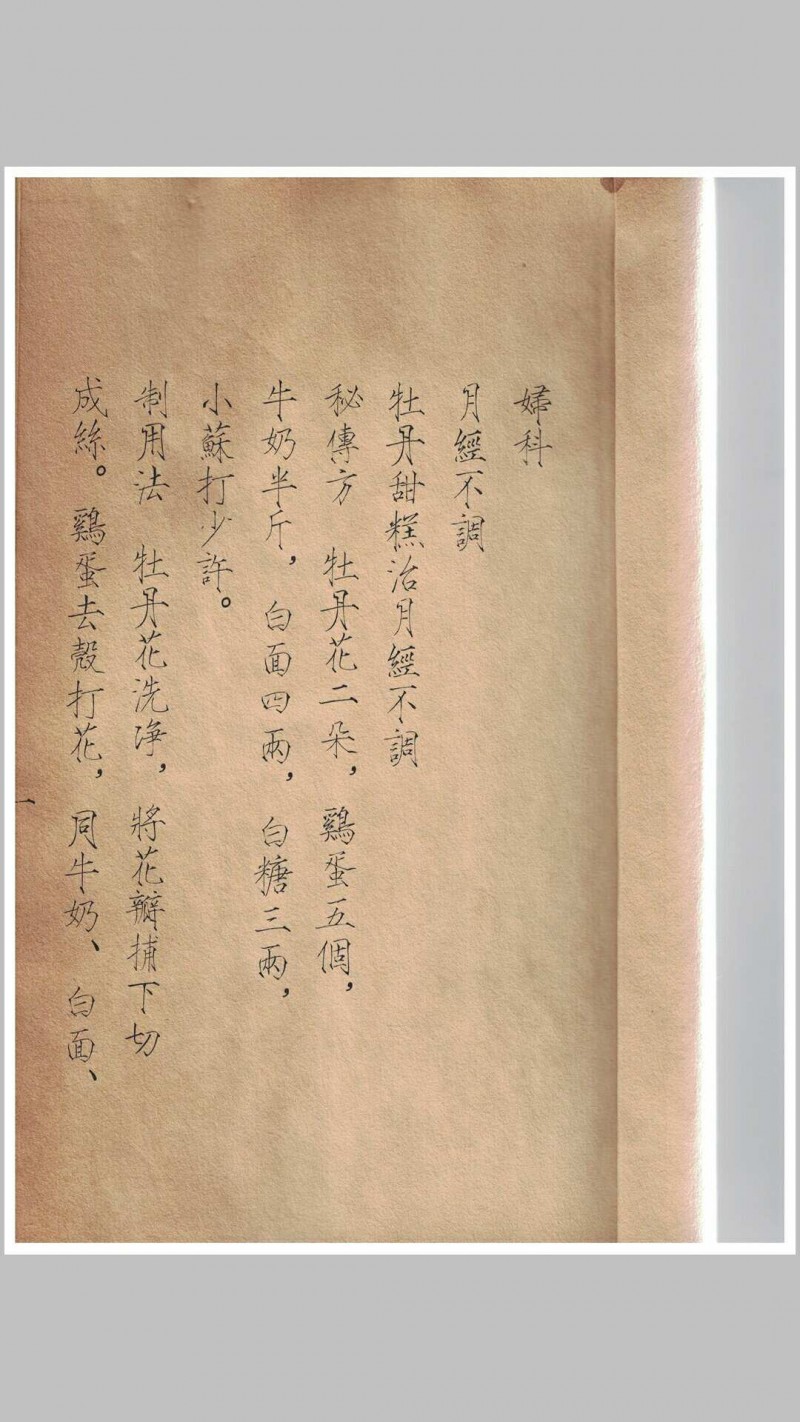 婦科
月經不調
牡丹甜糕治月經不調
秘傳方 牡丹花二朵，鷄蛋五個，
牛奶半斤，白面四兩，白糖三兩，
小蘇打少許。
制用法 牡丹花洗净，將花瓣捕下切
成絲。鷄蛋去殼打花，同牛奶、白面、
一